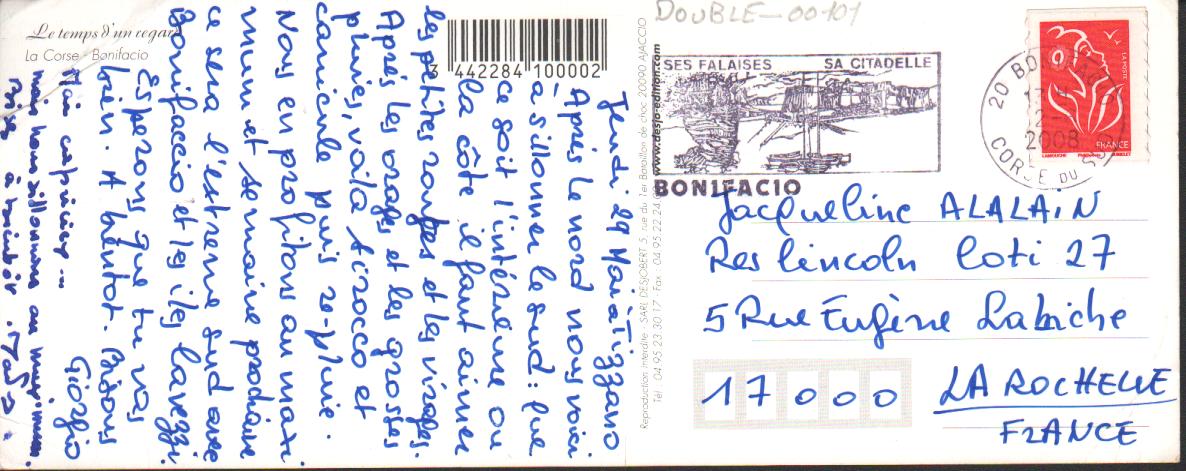 Le temps d'un regard
La Corse - Bonifacio
3 442284 100002
Jeudi 29 Mai à Tizzano
Après le nord nous voici
à sillonner le sud : que
ce soit l'intérieur ou
la côte il faut aimer
les petites routes et les virages.
Après les orages et les grosses
pluies, voilà sirocco et
canicule puis re-pluie.
Nous en profitons au maxi-
mum et semaine prochaine
ce sera l'extrême sud avec
Bonifaccio et les îles Lavezzi.
Espérons que tu vas
bien. A bientôt. Bisous
Giorgio
Mai capricieux...
mais nous sillonnons au maximum
à bientôt.
Reproduction interdite - SARL DESJOBERT 5, rue du 1er Bataillon de choc 20090 AJACCIO
Tél : 04.95.23.30.17 - Fax : 04.95.22.24.
www.desjo-edition.com
DOUBLE-00101
SES FALAISES SA CITADELLE
BONIFACIO
20 BONIFACIO
2008
CORSE DU SUD
LA POSTE
FRANCE
LAMOUCHE
Jacqueline ALALAIN
Res Lincoln Loti 27
5 Rue Eugène Labiche
17000 LA ROCHELLE
FRANCE